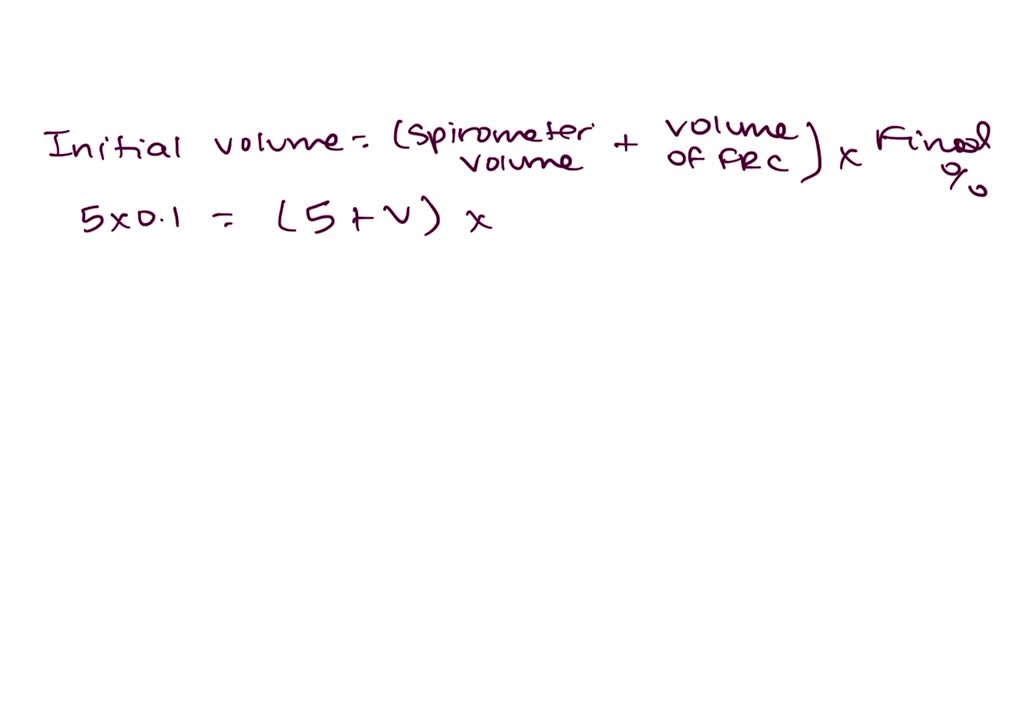 Initial volume = (Spirometer volume + volume of FRC) x Final %
5 x 0.1 = (5 + V) x